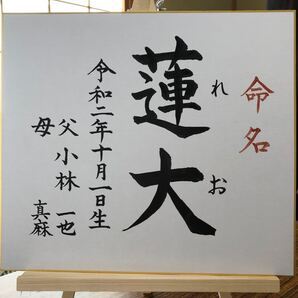 命名
れお
蓮大
令和二年十月一日生
父 小林 一也
母 真麻